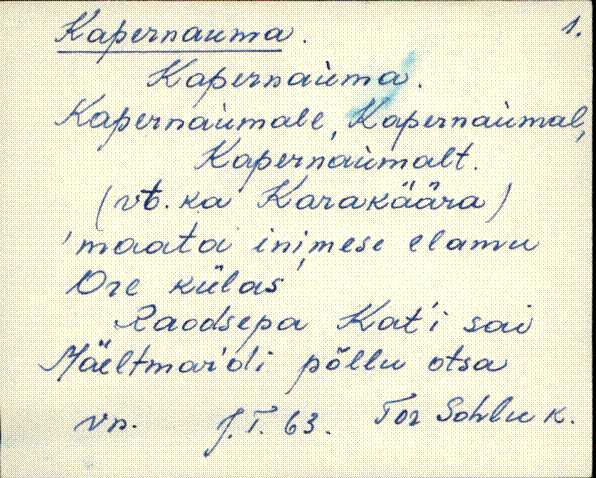 Kapernauma. 1.
Kapernaùma.
Kapernaùmale, Kapernaùmal,
Kapernaùmalt.
(vt. ka Karakäära)
'maata inimese elamu
Ore külas'
Raodsepa Kat'i sai
Mäeltmaŕdi põllu otsa
vn. J.T. 63. Tor Sohlu k.